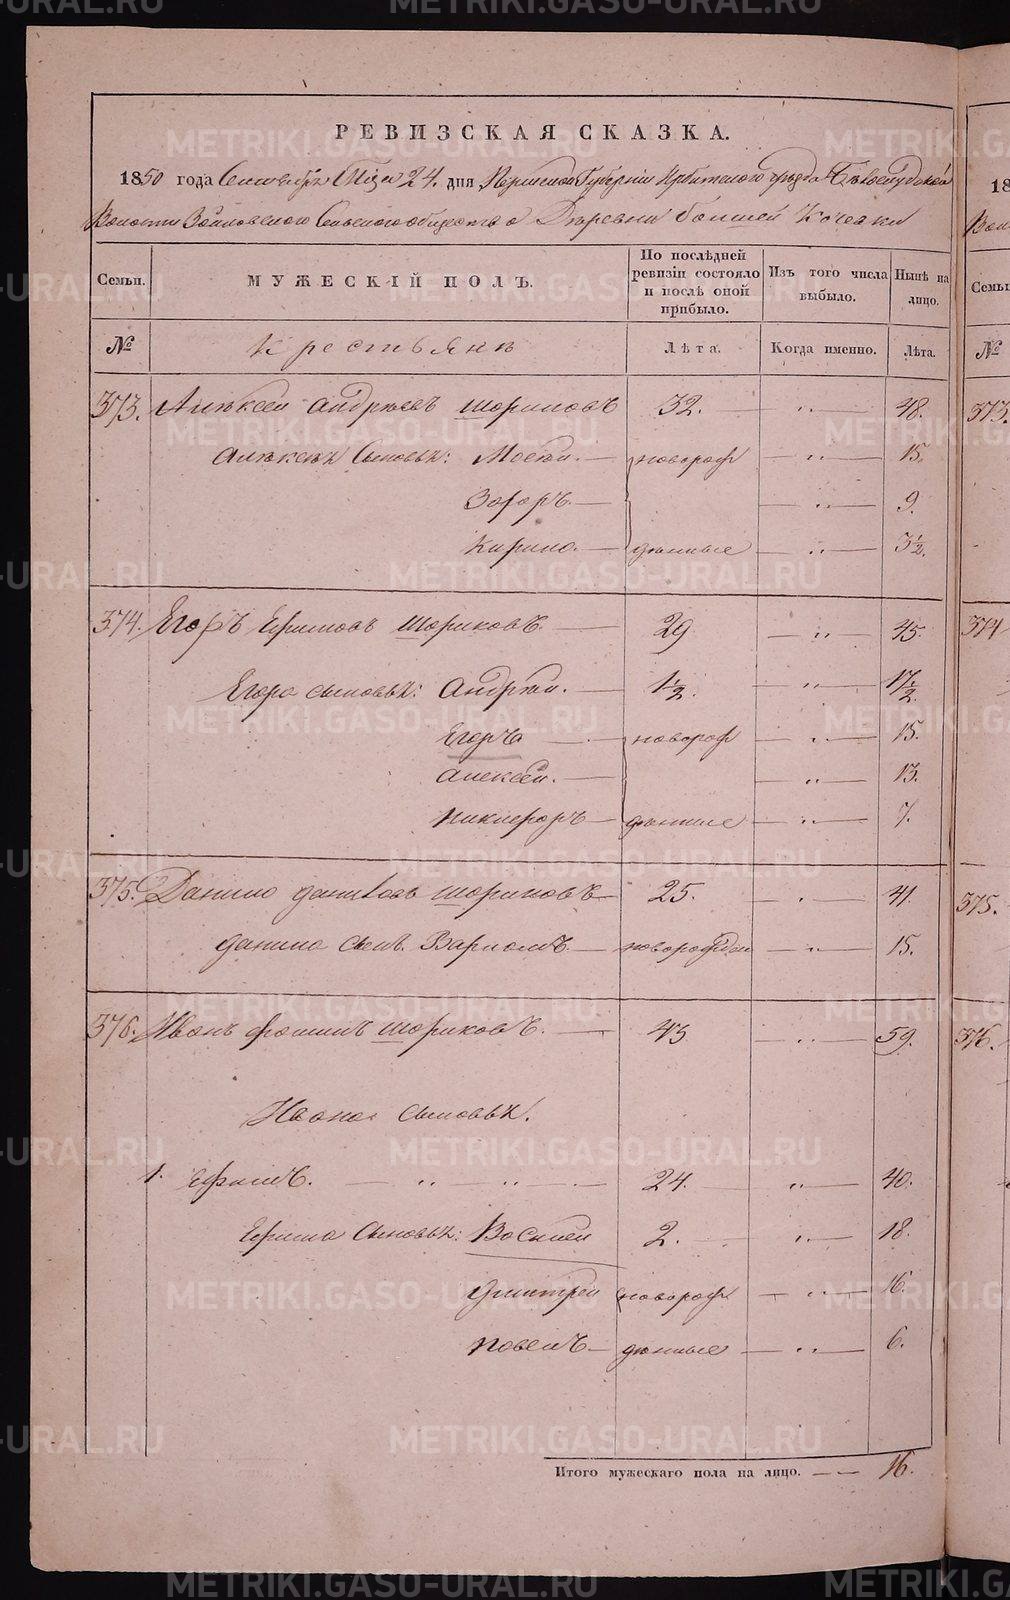 РЕВИЗСКАЯ СКАЗКА.
1850 года Сентября Мца 24. дня Пермской Губернии Ирбитского уезда Белослудской
Волости Зайковского Сельского общества Деревни большей Кочевки
Семьи.
МУЖЕСКІЙ ПОЛЪ.
По послѣдней ревизіи состояло и послѣ оной прибыло.
Изъ того числа выбыло.
Нынѣ на лицо.
№ крестьяне Лѣта. Когда именно. Лѣта.
373. Алексей андреевъ шориковъ 32. — „ — 48.
алексея Сыновья: Мосеи. — новорож — „ — 15.
Зохоръ. — — „ — 9.
Кирило. — денные — „ — 3½.
374. Егоръ ефимовъ шориковъ. — 29 — „ — 45.
Егора сыновья: Андреи. — 1½. — „ — 17½.
Егоръ — новорож — „ — 15.
алексеи. — — „ — 13.
никиеоръ — денные — „ — 7.
375. Данило даниловъ шориковъ — 25. — „ — 41.
данила сынъ Варламъ. — новорожден — „ — 15.
376. Иванъ фоминъ шориковъ. — 43 — „ — 59.
Ивана сыновья.
1. ефимъ. — „ — „ — 24. „ — 40.
Ефима Сыновья: Восилеи 2. — „ — 18.
дмитреи новорож — „ — 16.
повелъ — денные — „ — 6.
Итого мужескаго пола на лицо. — — 16.
373.
374
375.
376.
METRIKI.GASO-URAL.RU